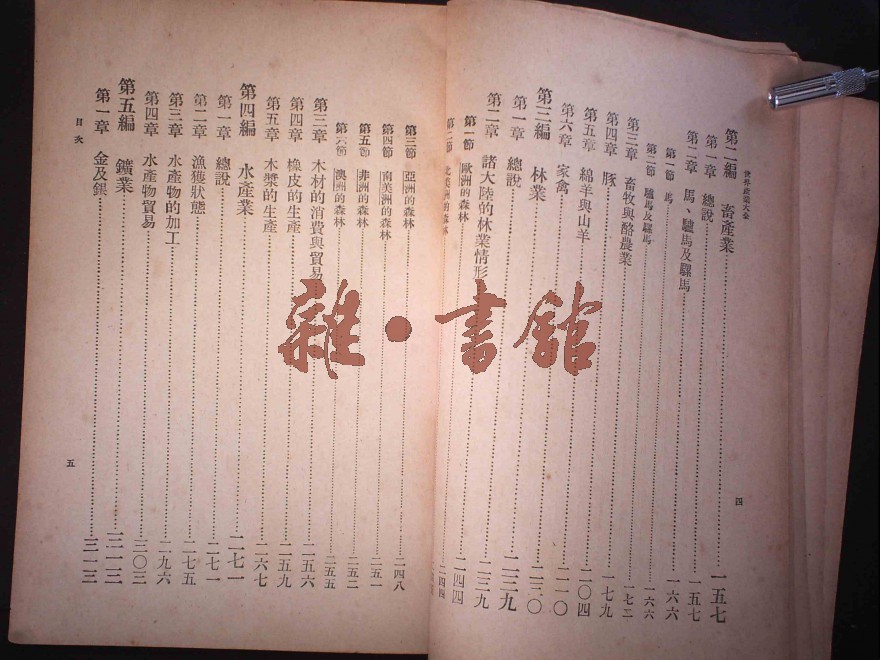 世界產業大全
第二編 畜產業……一五七
第一章 總說……一五七
第二章 馬、驢馬及騾馬……一六六
第一節 馬……一六六
第二節 驢馬及騾馬……一七二
第三章 畜牧與酪農業……一七九
第四章 豚……二〇四
第五章 綿羊與山羊……二一〇
第六章 家禽……二三〇
第三編 林業……二三九
第一章 總說……二三九
第二章 諸大陸的林業情形……二四四
第一節 歐洲的森林……二四四
第二節 北美洲的森林
四
第三節 亞洲的森林……二四八
第四節 南美洲的森林……二五一
第五節 非洲的森林……二五二
第六節 澳洲的森林……二五五
第三章 木材的消費與貿易……二五六
第四章 橡皮的生產……二五九
第五章 木漿的生產……二六七
第四編 水產業……二七一
第一章 總說……二七一
第二章 漁獲狀態……二七五
第三章 水產物的加工……二九六
第四章 水產物貿易……三〇三
第五編 鑛業……三一三
第一章 金及銀……三一三
目次
五
雜·書館